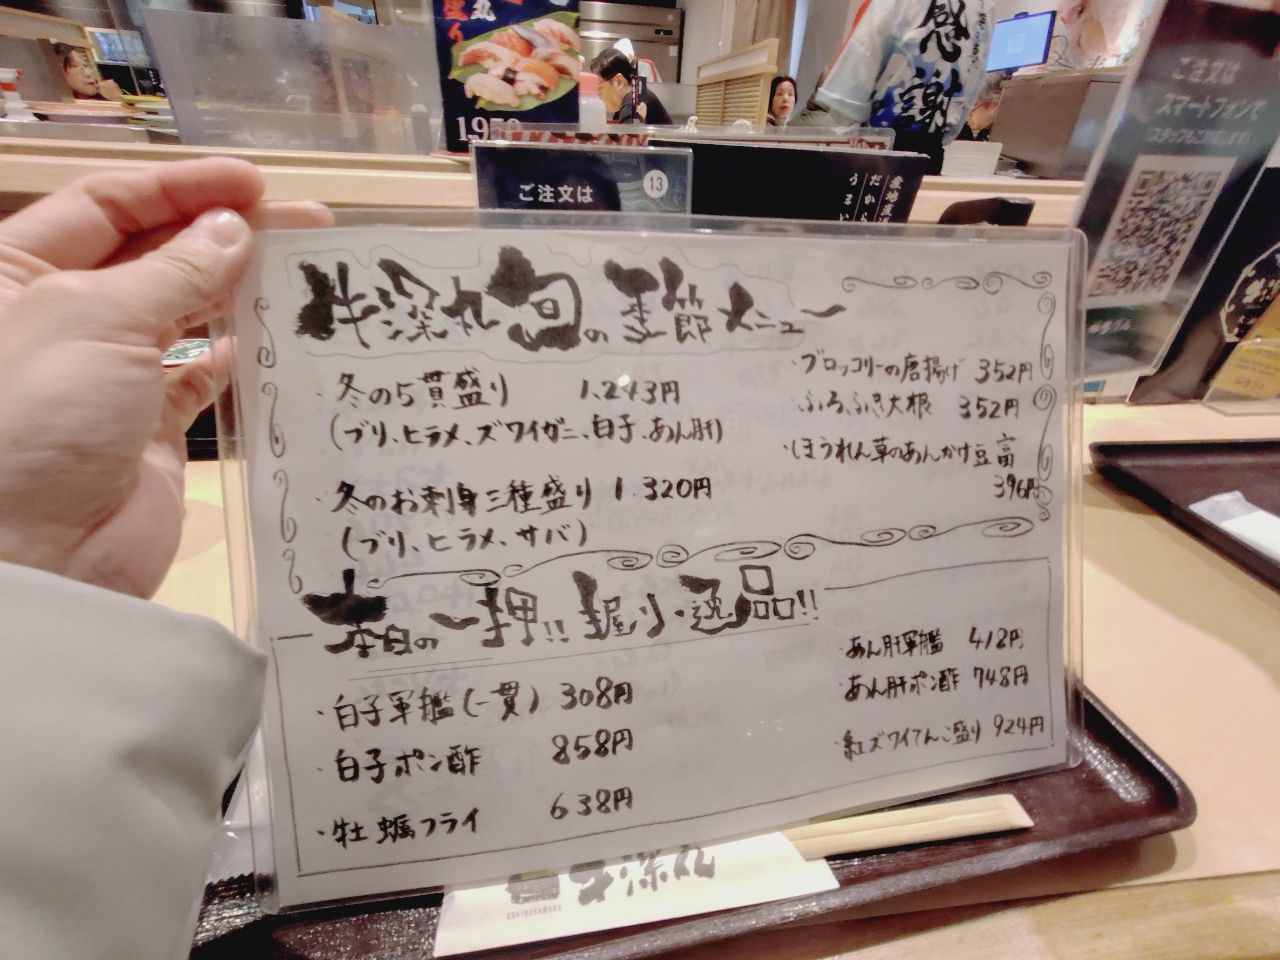 感謝
1,950
ご注文は
13
産地直
だから
うまい
ご注文は
スマートフォンで
牛深丸旬の季節メニュー
・冬の5貫盛り 1,243円
(ブリ、ヒラメ、ズワイガニ、白子、あん肝)
・冬のお刺身三種盛り 1,320円
(ブリ、ヒラメ、サバ)
・ブロッコリーの唐揚げ 352円
・ふろふき大根 352円
・ほうれん草のあんかけ豆富
396円
本日の一押!!握り・逸品!!
・白子軍艦(一貫) 308円
・白子ポン酢 858円
・牡蠣フライ 638円
・あん肝軍艦 418円
・あん肝ポン酢 748円
・紅ズワイてんこ盛り 924円
牛深丸